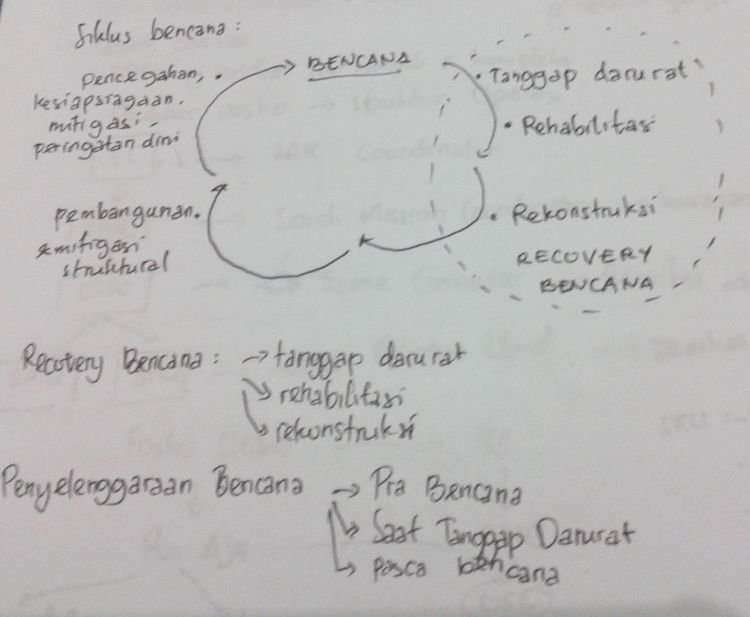 Siklus bencana :
pencegahan,
kesiapsiagaan.
mitigasi -
peringatan dini
BENCANA
Tanggap darurat
Rehabilitasi
Rekonstruksi
RECOVERY
BENCANA
pembangunan.
& mitigasi
struktural
Recovery Bencana : → tanggap darurat
→ rehabilitasi
→ rekonstruksi
Penyelenggaraan Bencana → Pra Bencana
→ Saat Tanggap Darurat
→ Pasca bencana